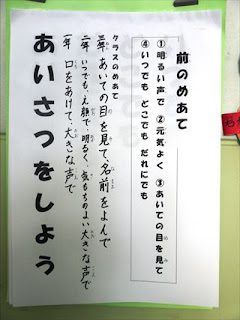 前のめあて
①明るい声で ②元気よく ③あいての目を見て
④いつでも どこでも だれにでも
クラスのめあて
三年 あいての目を見て、名前をよんで
二年 いつでも、え顔で、明るく、気もちのよい大きな声で
一年 口をあけて、大きな声で
あいさつをしよう